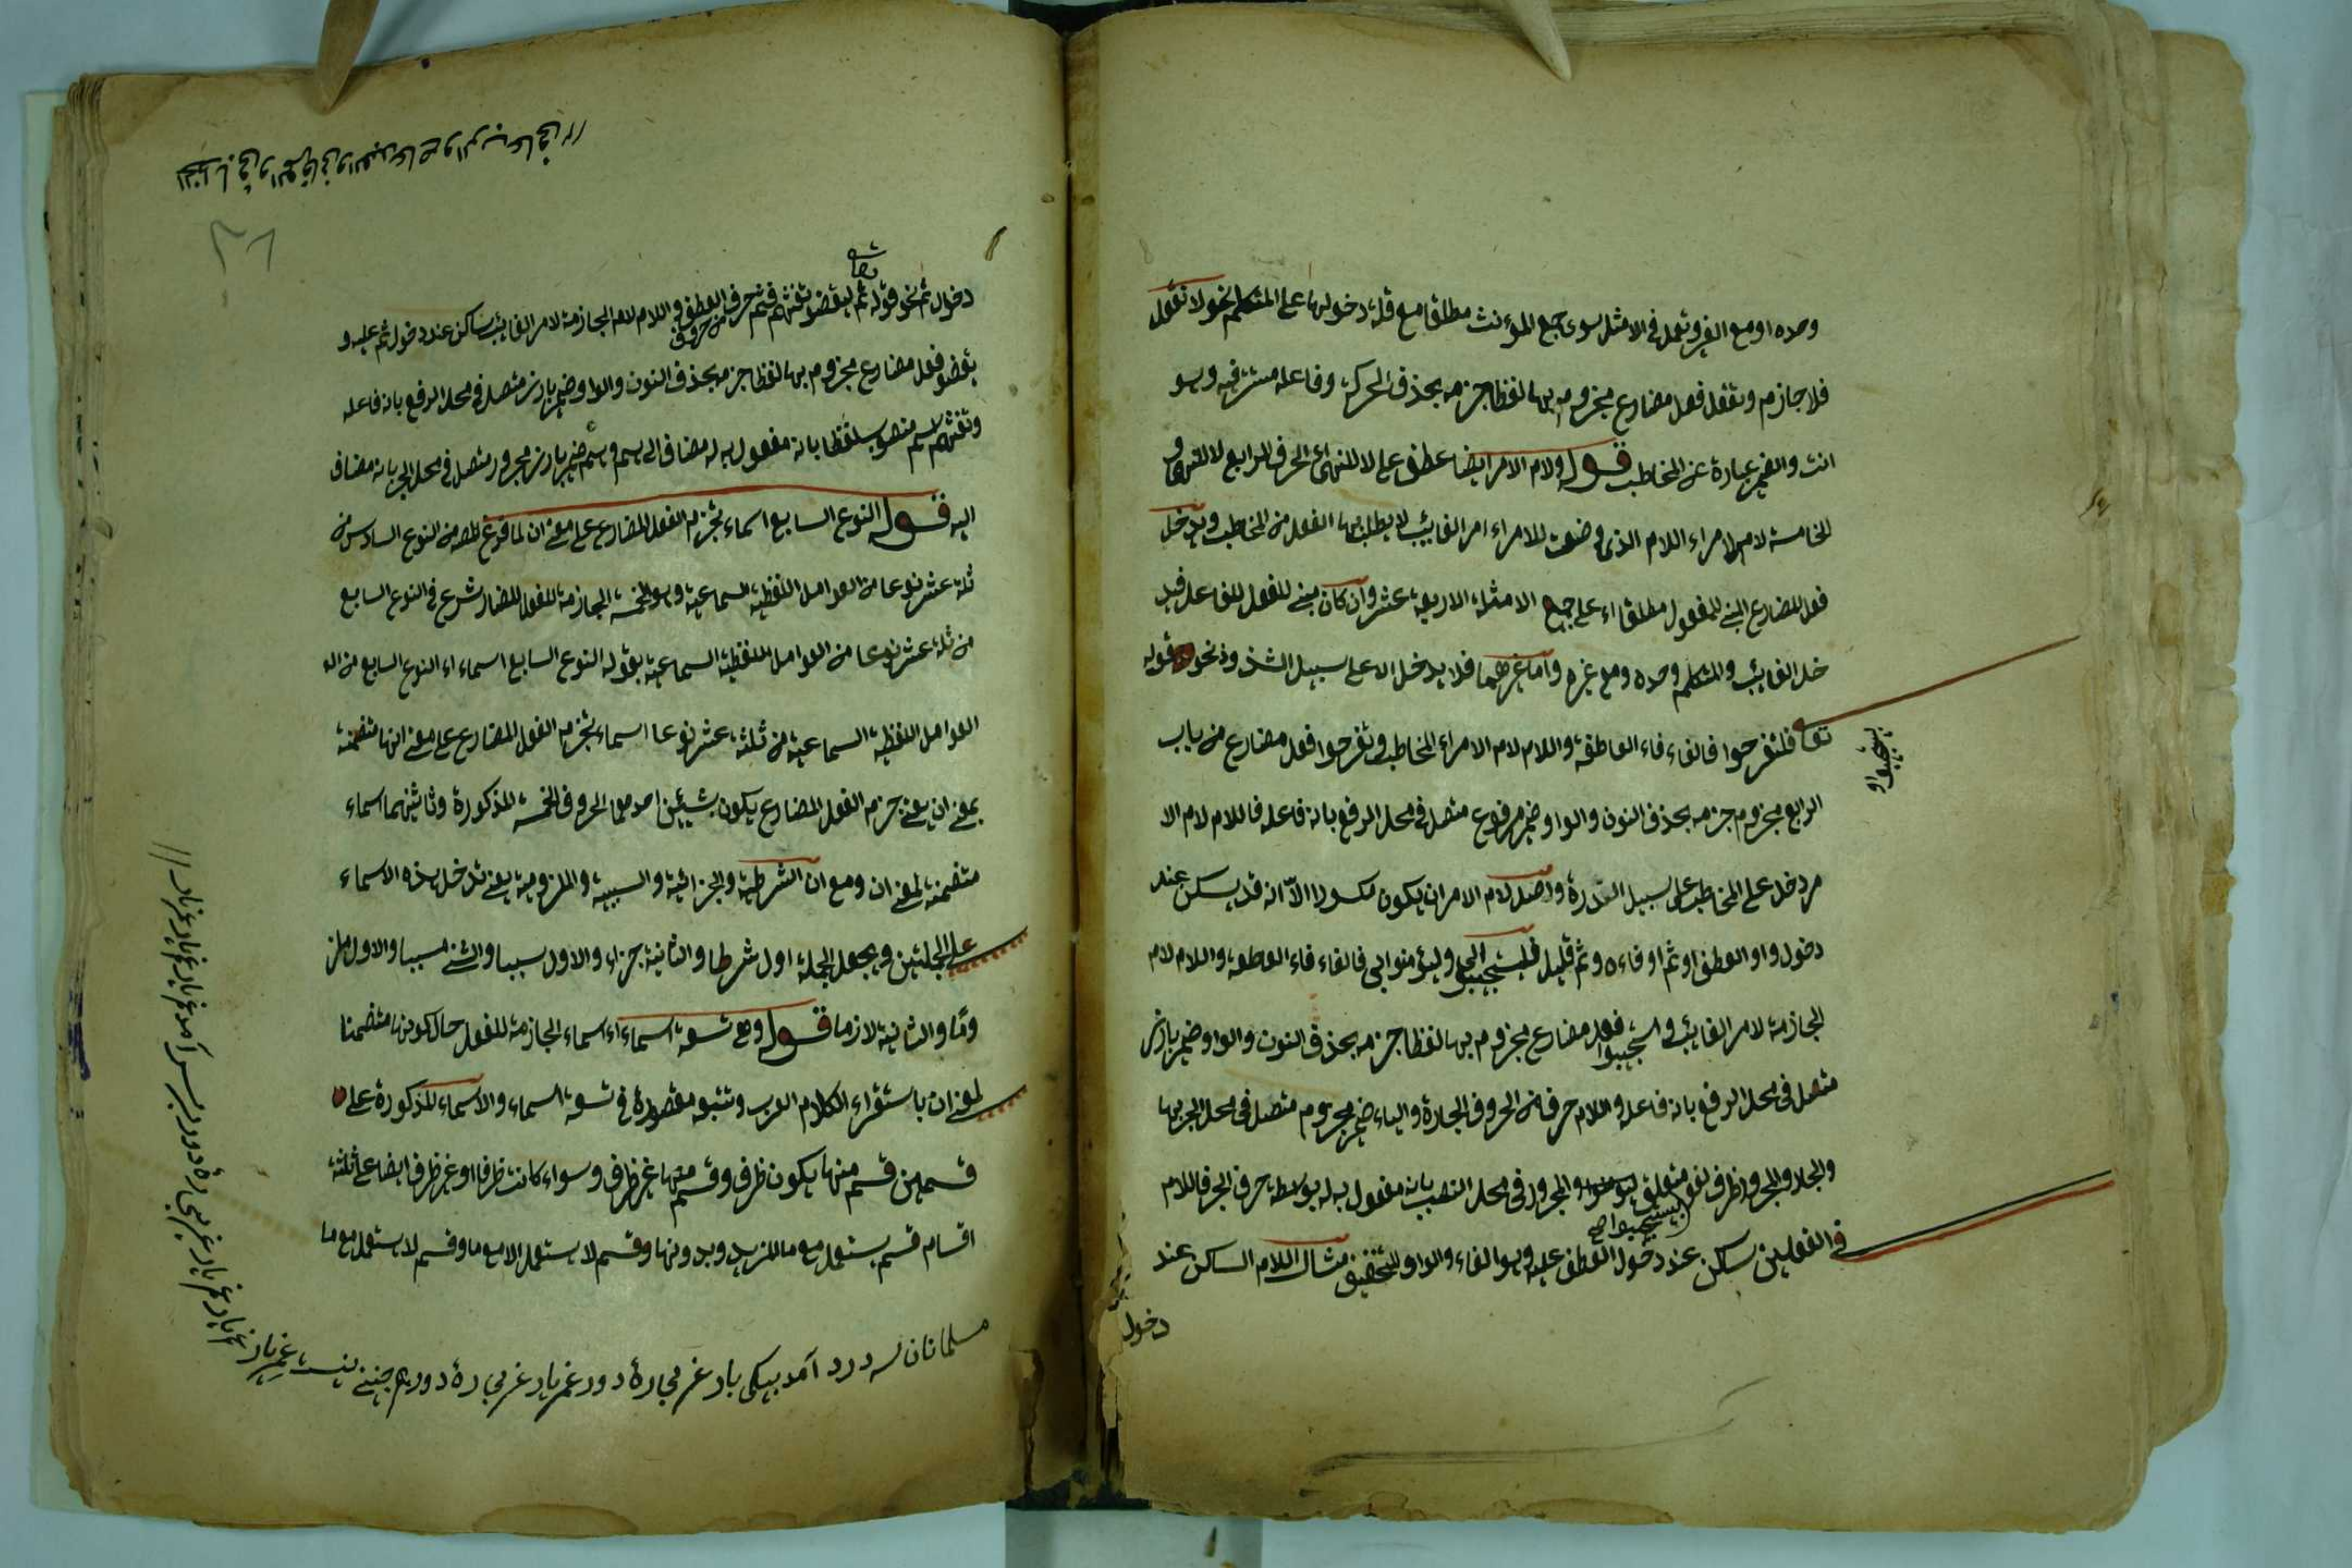 وحده او مع الغير وتعمل فى الامثل سوى جمع المؤنث مطلقا مع قلة دخولها على المتكلم نحو لا نقول
فلا جازم ونقفل فعل مضارع مجزوم بها لفظا جزمه بحذف الحركة وفاعله مستتر فيه وهو
انت والضمير عبارة عن المخاطب قوله ولام الامر ايضا عطف على لا للنهى اى الحرف الرابع لا للنهى و
الخامسة لام الامر اى اللام الذى وضعت للامر اى امر الغايب لا يطلب بها الفعل من المخاطب ويدخل
فعل المضارع المبنى للمفعول مطلقا اى على جميع الامثلة الاربعة عشر وان كان مبنى للفعل للفاعل فيد
خل الغايب والمتكلم وحده ومع غيره واما غيرهما فلا يدخل الا على سبيل الشذوذ نحو قوله
تعا فلتفرحوا فالفاء فاء العاطفة واللام لام الامر اى المخاطب وتفرحوا فعل مضارع من باب
الرابع مجزوم جزمه بحذف النون والواو ضمير مرفوع متصل فى محل الرفع بانه فاعله فاللام لام الا
مر دخل على المخاطب على سبيل الندرة واصل لام الامر ان يكون مكسورا الا انه قد يسكن عند
دخول واو العطف او ثم او فاءه وثم قليل فليستجيبوا لى وليؤمنوا بى فالفاء فاء العاطفه واللام لام
الجازمة لامر الغايب و يستجيبوا فعل مضارع مجزوم بها لفظا جزمه بحذف النون والواو ضمير بارز
متصل فى محل الرفع بانه فاعله واللام حرف من الحروف الجارة والياء ضمير مجروم متصل فى محل الجر بها
والجار والمجرور ظرف لغو متعلق ليؤمنوا والمجرور فى محل النصب بانه مفعول به له بواسطة حرف الجر فاللام
ليستجيبوا صح
فى الفعلين سكن عند دخول العطف عليه وهو الفاء والواو للتخفيف مثال اللام الساكن عند
دخول
يستجيبوا و
دخول ثم نحو قوله ثم ليقضوا تفثهم فثم حرف من حروف العطف و اللام لام الجازمة لامر الغايب ساكن عند دخول ثم عليه و
تعالى
يقضوا فعل مضارع مجزوم بها لفظا جزمه بحذف النون والواو ضمير بارز متصل فى محل الرفع بانه فاعله
وتفثهم اسم منصوب لفظا بانه مفعول به له مضاف الى هم وهم ضمير بارز مجرور متصل فى محل الجر بانه مضاف
اليه قوله النوع السابع اسماء تجزم الفعل المضارع على معنى ان لما فرغ المص من النوع السادس من
ثلثة عشر نوعا من العوامل اللفظية السماعية وهو الخمسة الجازمة للفعل المضارع شرع فى النوع السابع
من ثلثة عشر نوعا من العوامل اللفظية السماعية بقوله النوع السابع اسماء اى النوع السابع من الـ
العوامل اللفظية السماعية من ثلثة عشر نوعا اسماء تجزم الفعل المضارع على معنى انها متضمنة
بمعنى ان يعنى جزم الفعل المضارع يكون بشيئين احدهما الحروف الخمسة المذكورة وثانيهما اسماء
متضمنة لمعنى ان ومع ان الشرطية والجزائية والسببية والملزومية يعنى تدخل هذه الاسماء
على الجملتين ويجعل الجملة اول شرطا والثانية جزاء والاول سببا والثنى مسببا والاول ملز
وما والثانية لازما قوله وهى تسعة اسماء اى اسماء الجازمة للفعل حال كونها متضمنا
لمعنى ان باستقراء الكلام العرب وتتبعه مقصورة فى تسعة اسماء والاسماء المذكورة على
قسمين قسم منها يكون ظرف وقسم منها غير ظرف وسواء كانت ظرفا او غير ظرف ايضا على ثلثة
اقسام قسم يستعمل مع ما المزيد وبدونها وقسم لا يستعمل الا مع ما وقسم لا يستعمل مع ما